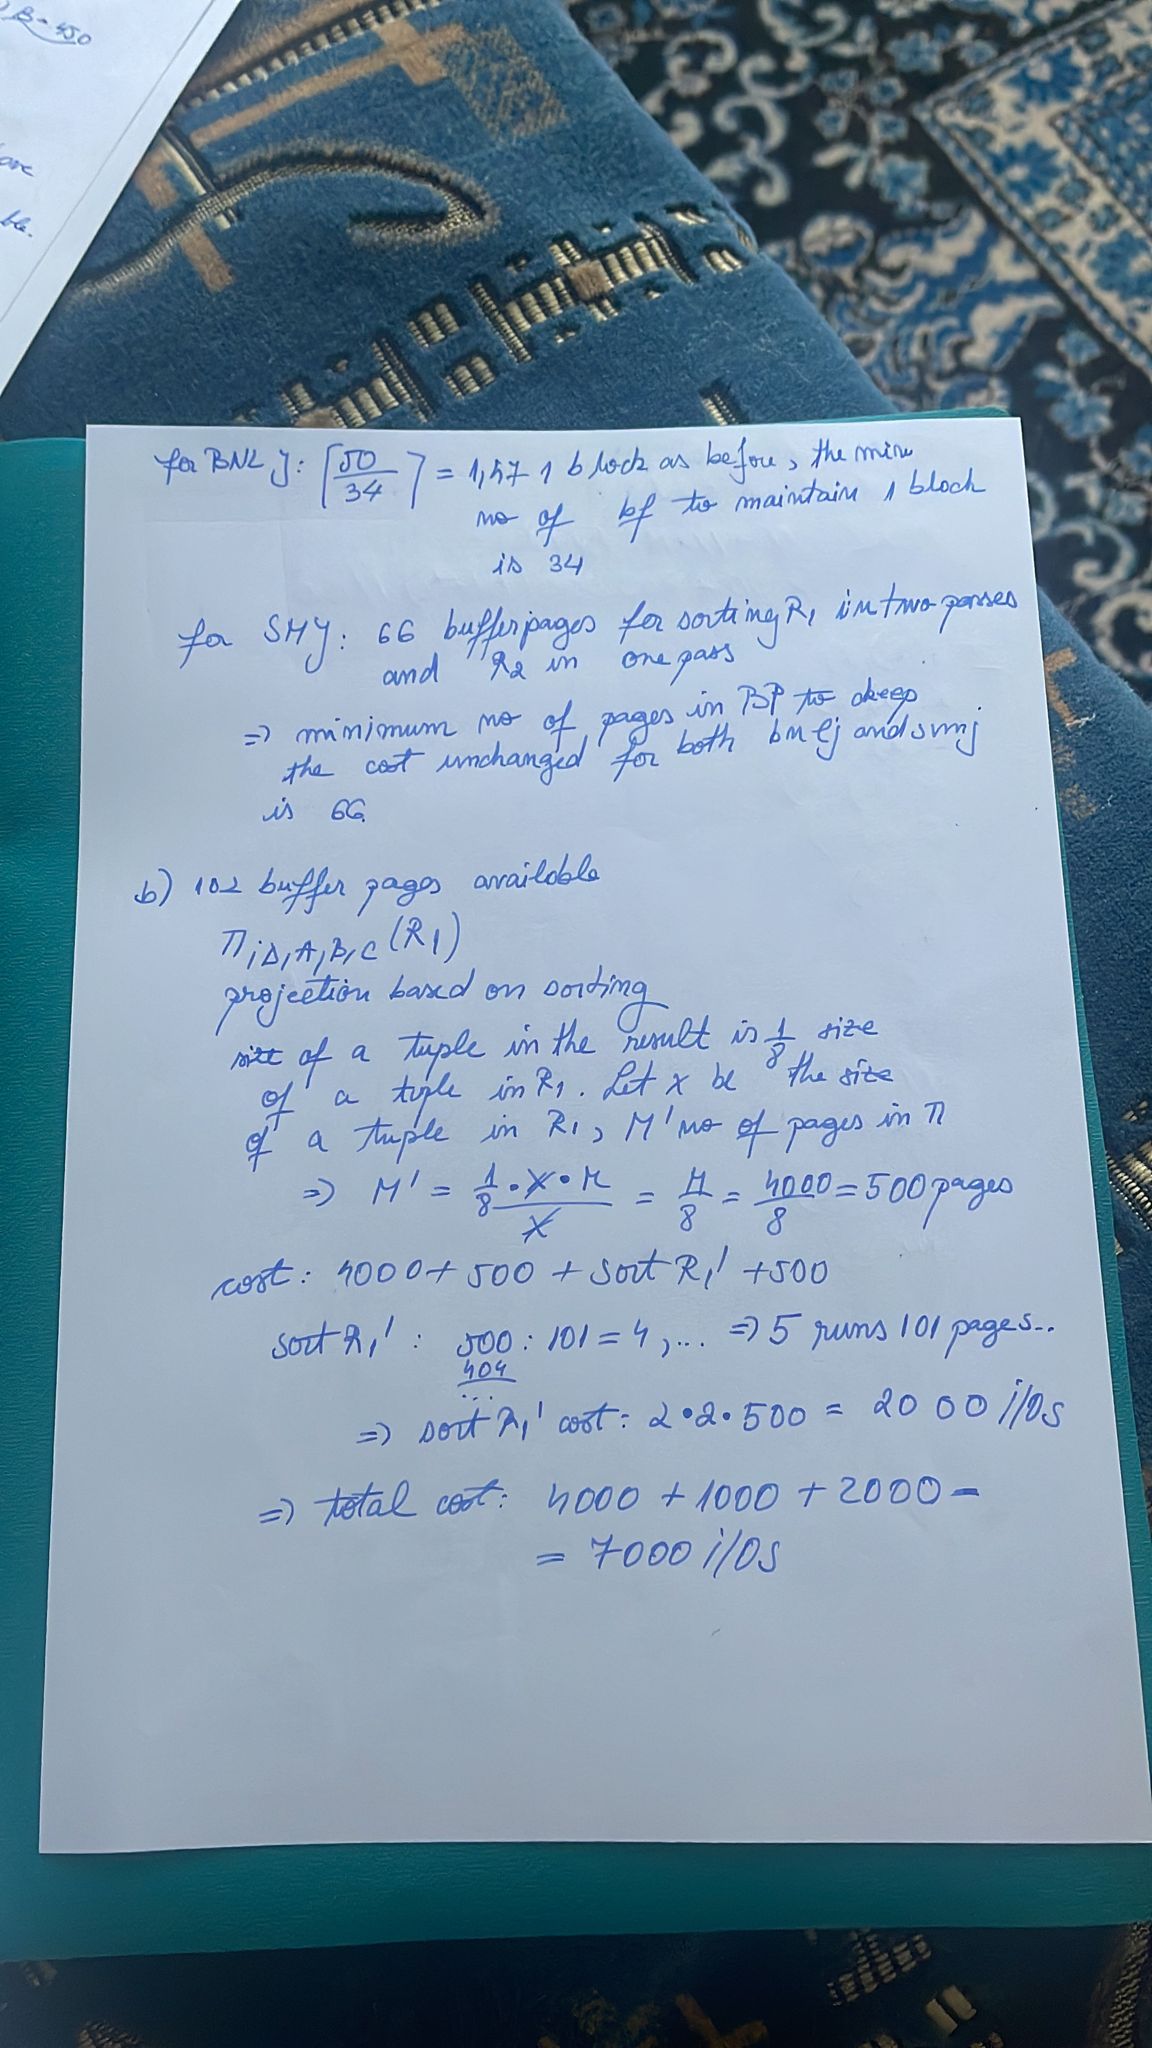 B = 450
ble.
for BNLJ: ⌈50/34⌉ = 1,47 1 block as before, the min
no of bf to maintain 1 block
is 34
for SMJ: 66 buffer pages for sorting R1 in two passes
and R2 in one pass
=> minimum no of pages in BP to keep
the cost unchanged for both bnlj and smj
is 66.
b) 102 buffer pages available
π iD, A, B, C (R1)
projection based on sorting
size of a tuple in the result is 1/8 size
of a tuple in R1. Let x be the size
of a tuple in R1, M' no of pages in π
=> M' = (1/8 • x • M)/x = M/8 = 4000/8 = 500 pages
cost: 4000 + 500 + sort R1' + 500
sort R1' : 500 : 101 = 4,... => 5 runs 101 pages...
404
...
=> sort R1' cost: 2•2•500 = 2000 i/Os
=> total cost: 4000 + 1000 + 2000 =
= 7000 i/Os